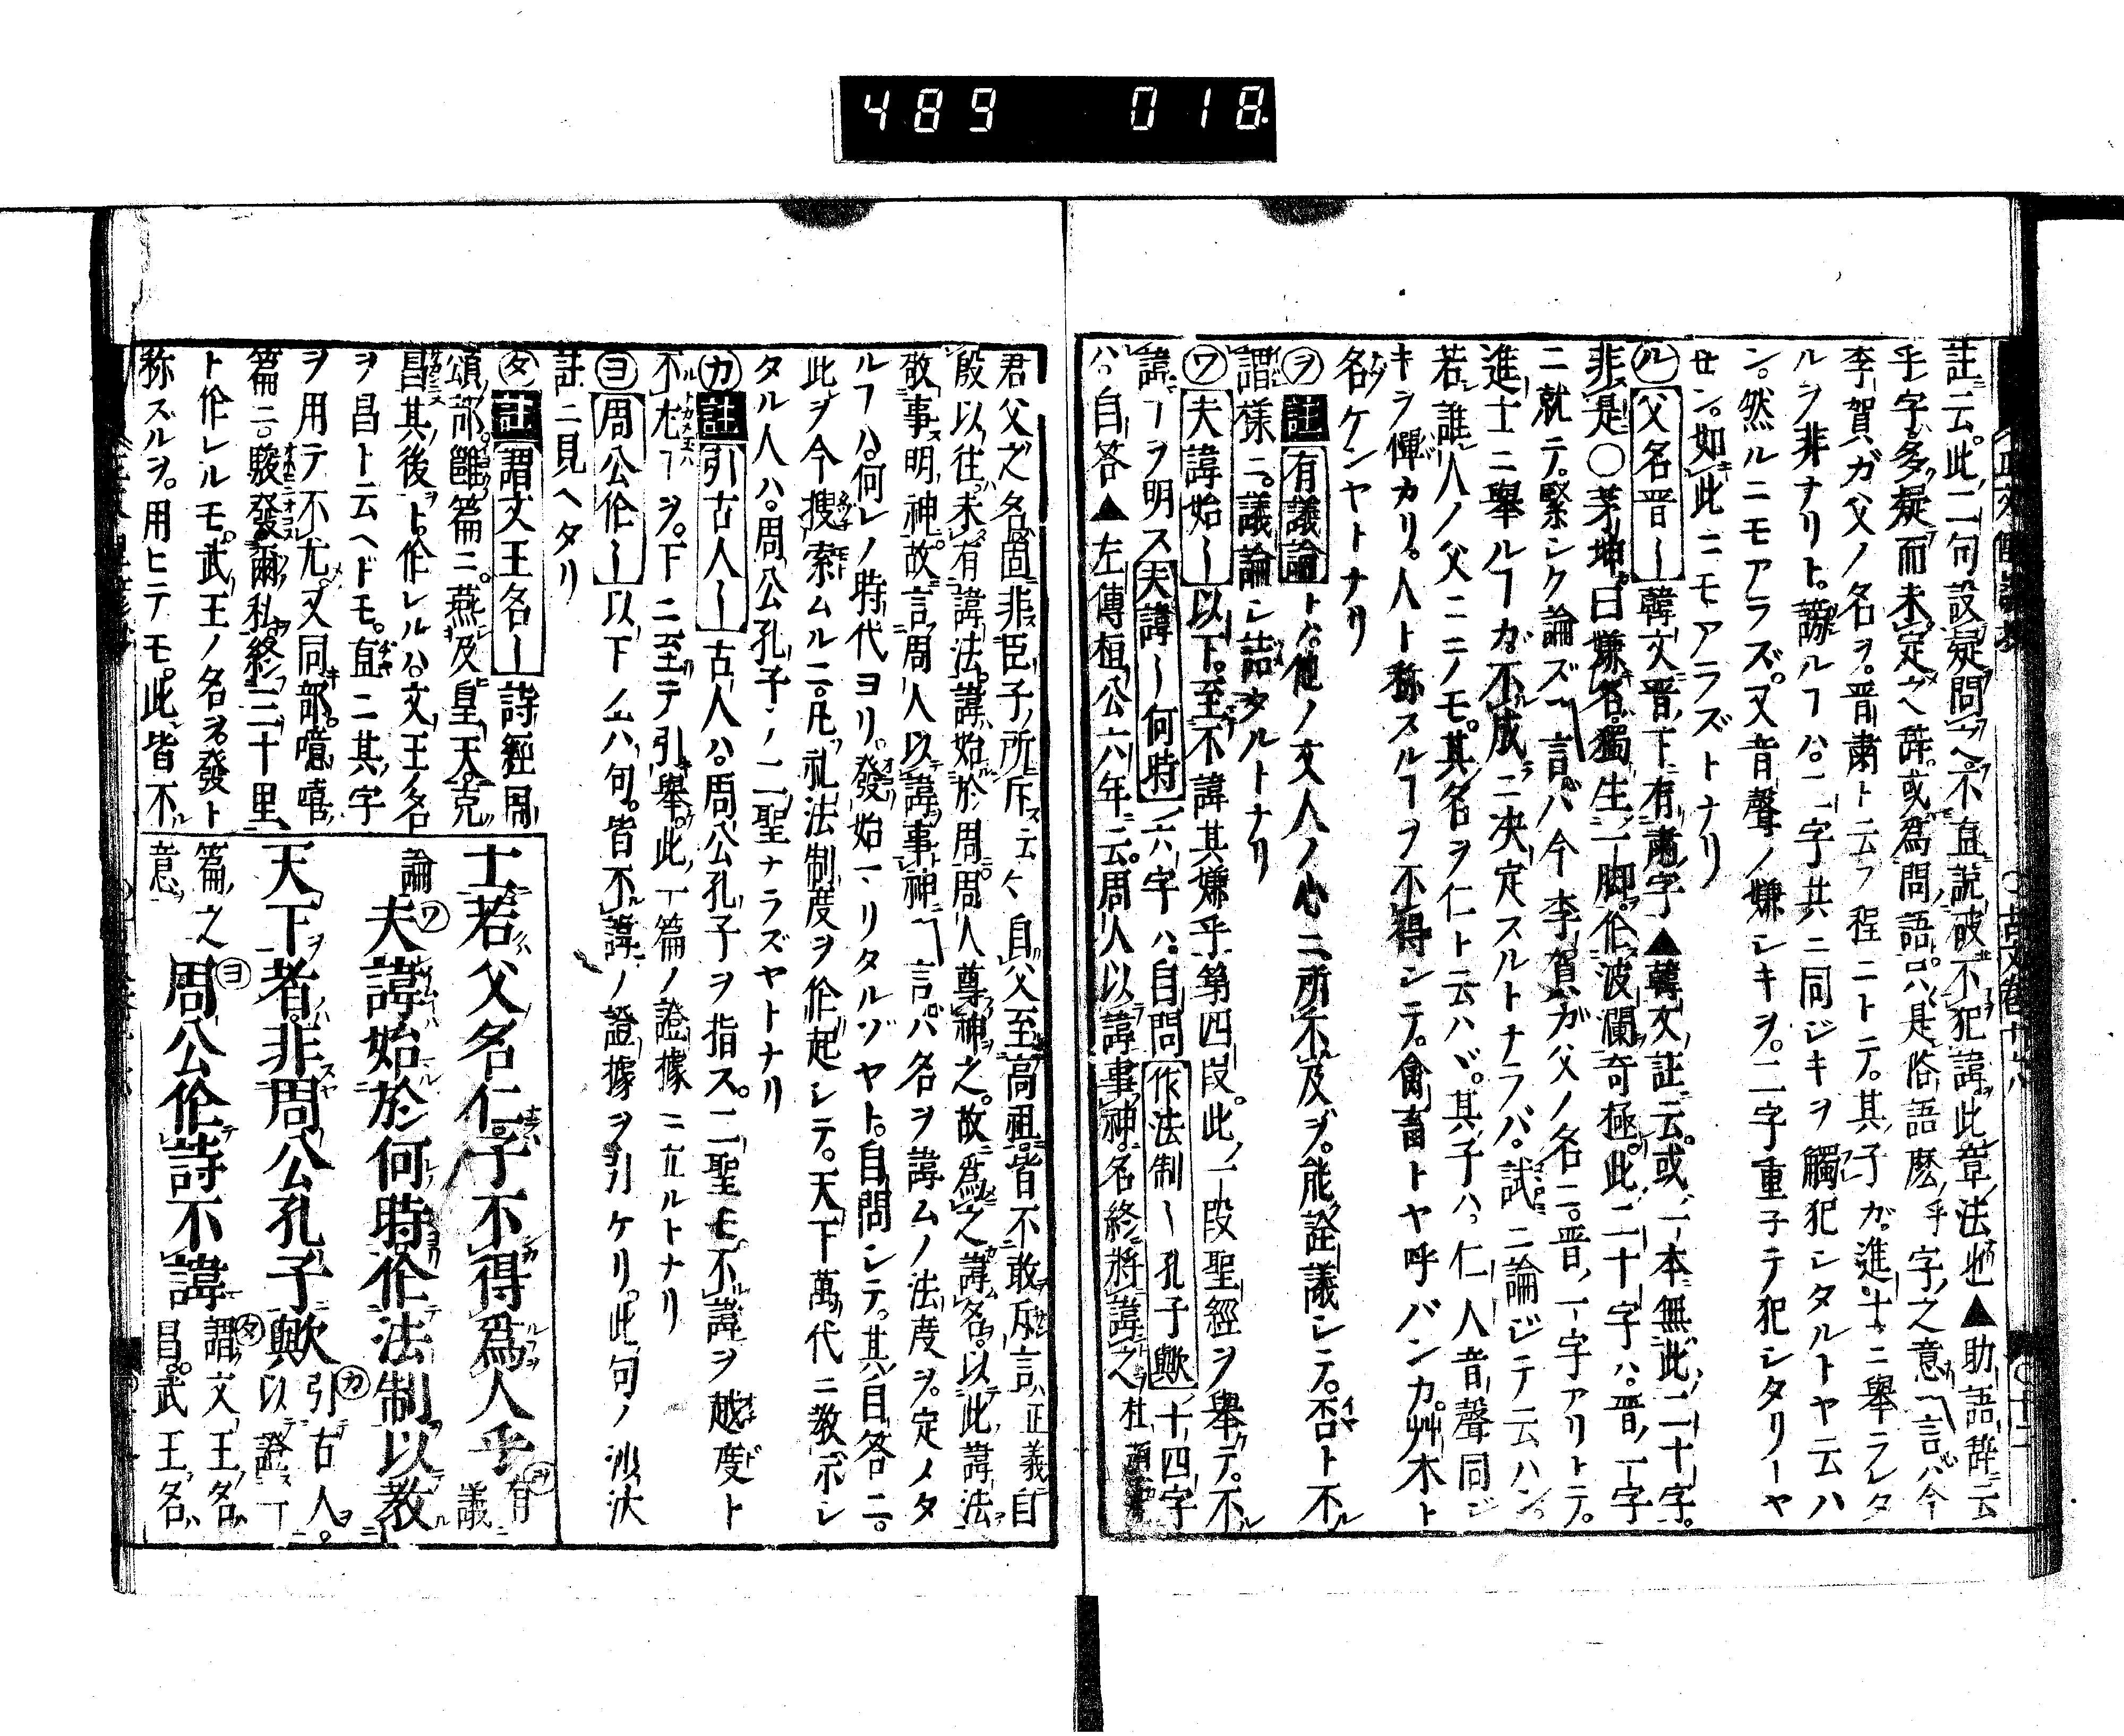 489 018
註ニ云。此ノ二句設疑問ヘ。不直説破不犯諱此章法也▲助語辞云
乎字多疑而未定之辞。或爲問語。只是俗語麽乎字之意言ハ今
李賀ガ父ノ名ヲ。晋肅ト云フ程ニトテ。其子ガ。進士ニ舉ラレタ
ルヲ非ナリト。謗ルヿハ。二字共ニ同ジキヲ觸犯シタルトヤ云ハ
ン。然ルニモアラズ。又音聲ノ嫌シキヲ。二字重子テ犯シタリーヤ
せン。如此ニモアラズトナリ
ル 父名晋〡 韓文晋下有肅字▲韓文註云。或一本無此二十字。
非是○茅坤曰嫌名獨生一脚。作波瀾奇極。此二十字ハ。晋ノ一字
ニ就テ。緊シク論ズ 言ハ今李賀ガ父ノ名ニ。晋ノ一字アリトテ。
進士ニ舉ルヿガ。不成ニ决定スルトナラバ。試ニ論ジテ云ハン。
若誰人ノ父ニニノモ。其名ヲ仁ト云ハバ。其子ハ。仁人音聲同ジ
キヲ憚カリ。人ト称スルヿヲ不得シテ。禽畜トヤ呼バンカ。艸木ト
名ケンヤトナリ
ヲ 註 有議論トハ。他ノ文人ノ心ニ所不及ヲ。能詮議シテ。否ト不
謂様ニ。議論シ詰タルトナリ
ワ 夫諱始〡 以下。至不諱其嫌乎第四段。此ノ一段聖經ヲ舉テ。不
諱ヿヲ明ス 夫諱〡何時 六字ハ。自問 作法制〡孔子歟 十四字
ハ。自答▲左傳桓公六年云。周人以諱事神名終將諱之
君父之名固非臣子ノ所斥云々自父至高祖。皆不敢斥言正義曰
殷以往未有諱法。諱始於周。周人尊神之。故爲之諱名。以此諱法
敬事明神。故言周人以諱事神 言ハ名ヲ諱ムノ法度ヲ。定メタ
ルヿハ。何レノ時代ヨリ。發始一リタルゾヤト。自問シテ。其自答ニ。
此ヲ今捜索ムルニ。凡礼法制度ヲ作起シテ。天下萬代ニ教示シ
タル人ハ。周公孔子ノ二聖ナラズヤトナリ
カ 註 引古人〡 古人ハ。周公孔子ヲ指ス。二聖モ不諱ヲ越度ト
不尤ヿヲ。下ニ至テ引舉。此一篇ノ證據ニ立ルトナリ
ヨ 周公作〡 以下ノ六句。皆不諱ノ證據ヲ引ケリ。此句ノ沙汰
註ニ見ヘタリ
タ 註 謂文王名〡 詩經周
頌部雝篇ニ。燕及皇天。克
昌其後ト。作レルハ。文王ノ名
ヲ昌ト云ヘドモ。直ニ其字
ヲ用テ不尤。又同部噫嘻
篇ニ。駿發爾私。終三十里
ト作レルモ。武王ノ名ヲ發ト
称スルヲ。用ヒニテモ。此皆不
士若父名仁。子不得爲人乎 有議
論 夫諱始於何時作法制以教
天下者。非周公孔子歟 引古人。以證一
篇之意 周公作詩不諱 謂文王名昌。武王名